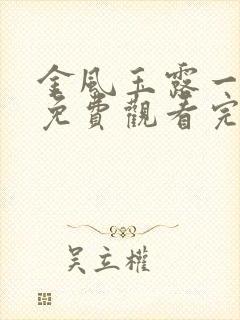 金風玉露一
免費觀看完
吴立權